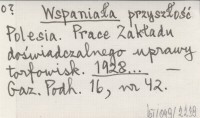 03 Wspaniała przyszłość
Polesia. Prace Zakładu
doświadczalnego uprawy
torfowisk. 1928... —
Gaz. Podh. 16, nr 42.